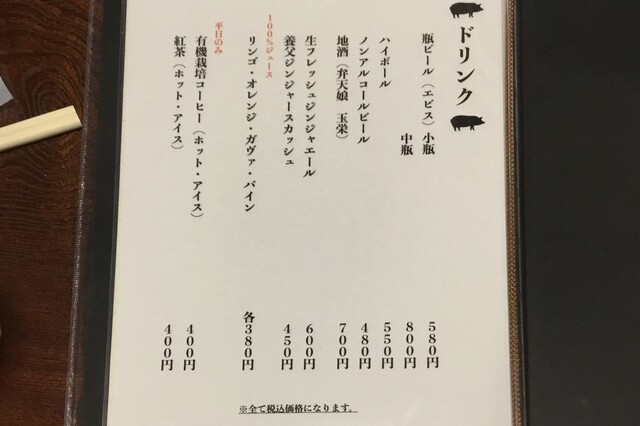 ドリンク
瓶ビール(エビス)小瓶 580円
中瓶 800円
ハイボール 550円
ノンアルコールビール 480円
地酒(弁天娘 玉栄) 700円
生フレッシュジンジャエール 600円
養父ジンジャースカッシュ 450円
100%ジュース
リンゴ・オレンジ・ガヴァ・パイン 各380円
平日のみ
有機栽培コーヒー(ホット・アイス) 400円
紅茶(ホット・アイス) 400円
※全て税込価格になります。